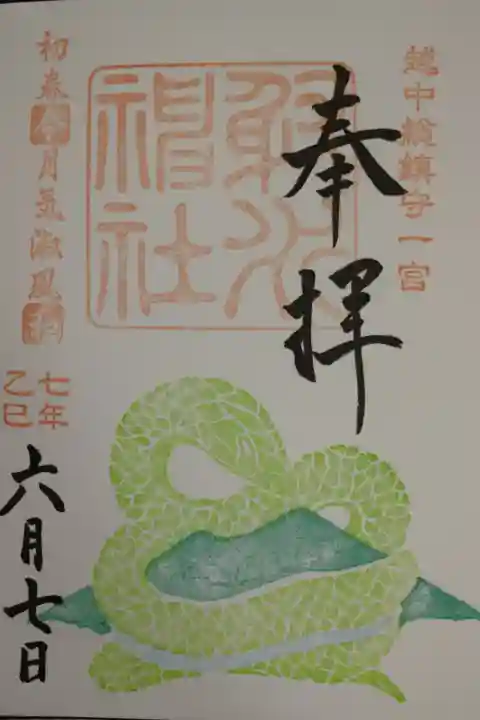 越中總鎮守一宮
奉拝
射水
神社
初春令月氣淑風和
七年
乙巳
六月七日